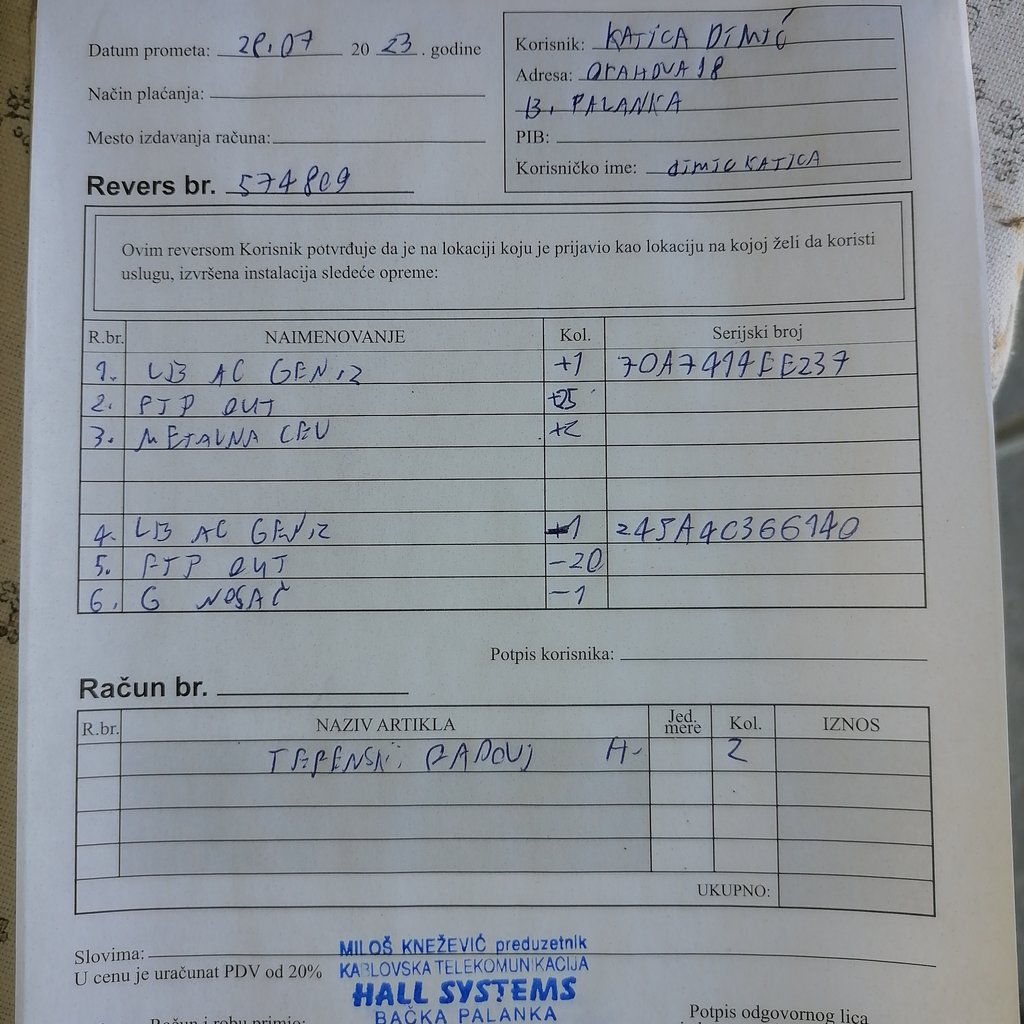 Datum prometa: 28.07 20 23. godine
Način plaćanja:
Mesto izdavanja računa:
Revers br. 574809
Korisnik: KATICA DIMIĆ
Adresa: ORAHOVA 18
B. PALANKA
PIB:
Korisničko ime: dimickATICA
Ovim reversom Korisnik potvrđuje da je na lokaciji koju je prijavio kao lokaciju na kojoj želi da koristi
uslugu, izvršena instalacija sledeće opreme:
R.br. NAIMENOVANJE Kol. Serijski broj
1. LB AC GEN 2 +1 70A7414EE237
2. FTP OUT +25
3. METALNA CEV +2
4. LB AC GEN 2 -1 245A4C366140
5. FTP OUT -20
6. G NOSAČ -1
Potpis korisnika:
Račun br.
R.br. NAZIV ARTIKLA Jed. mere Kol. IZNOS
TERENSKI RADOVI H- 2
UKUPNO:
Slovima:
U cenu je uračunat PDV od 20%
MILOŠ KNEŽEVIĆ preduzetnik
KABLOVSKA TELEKOMUNIKACIJA
HALL SYSTEMS
BAČKA PALANKA
Račun i robu primio:
Potpis odgovornog lica